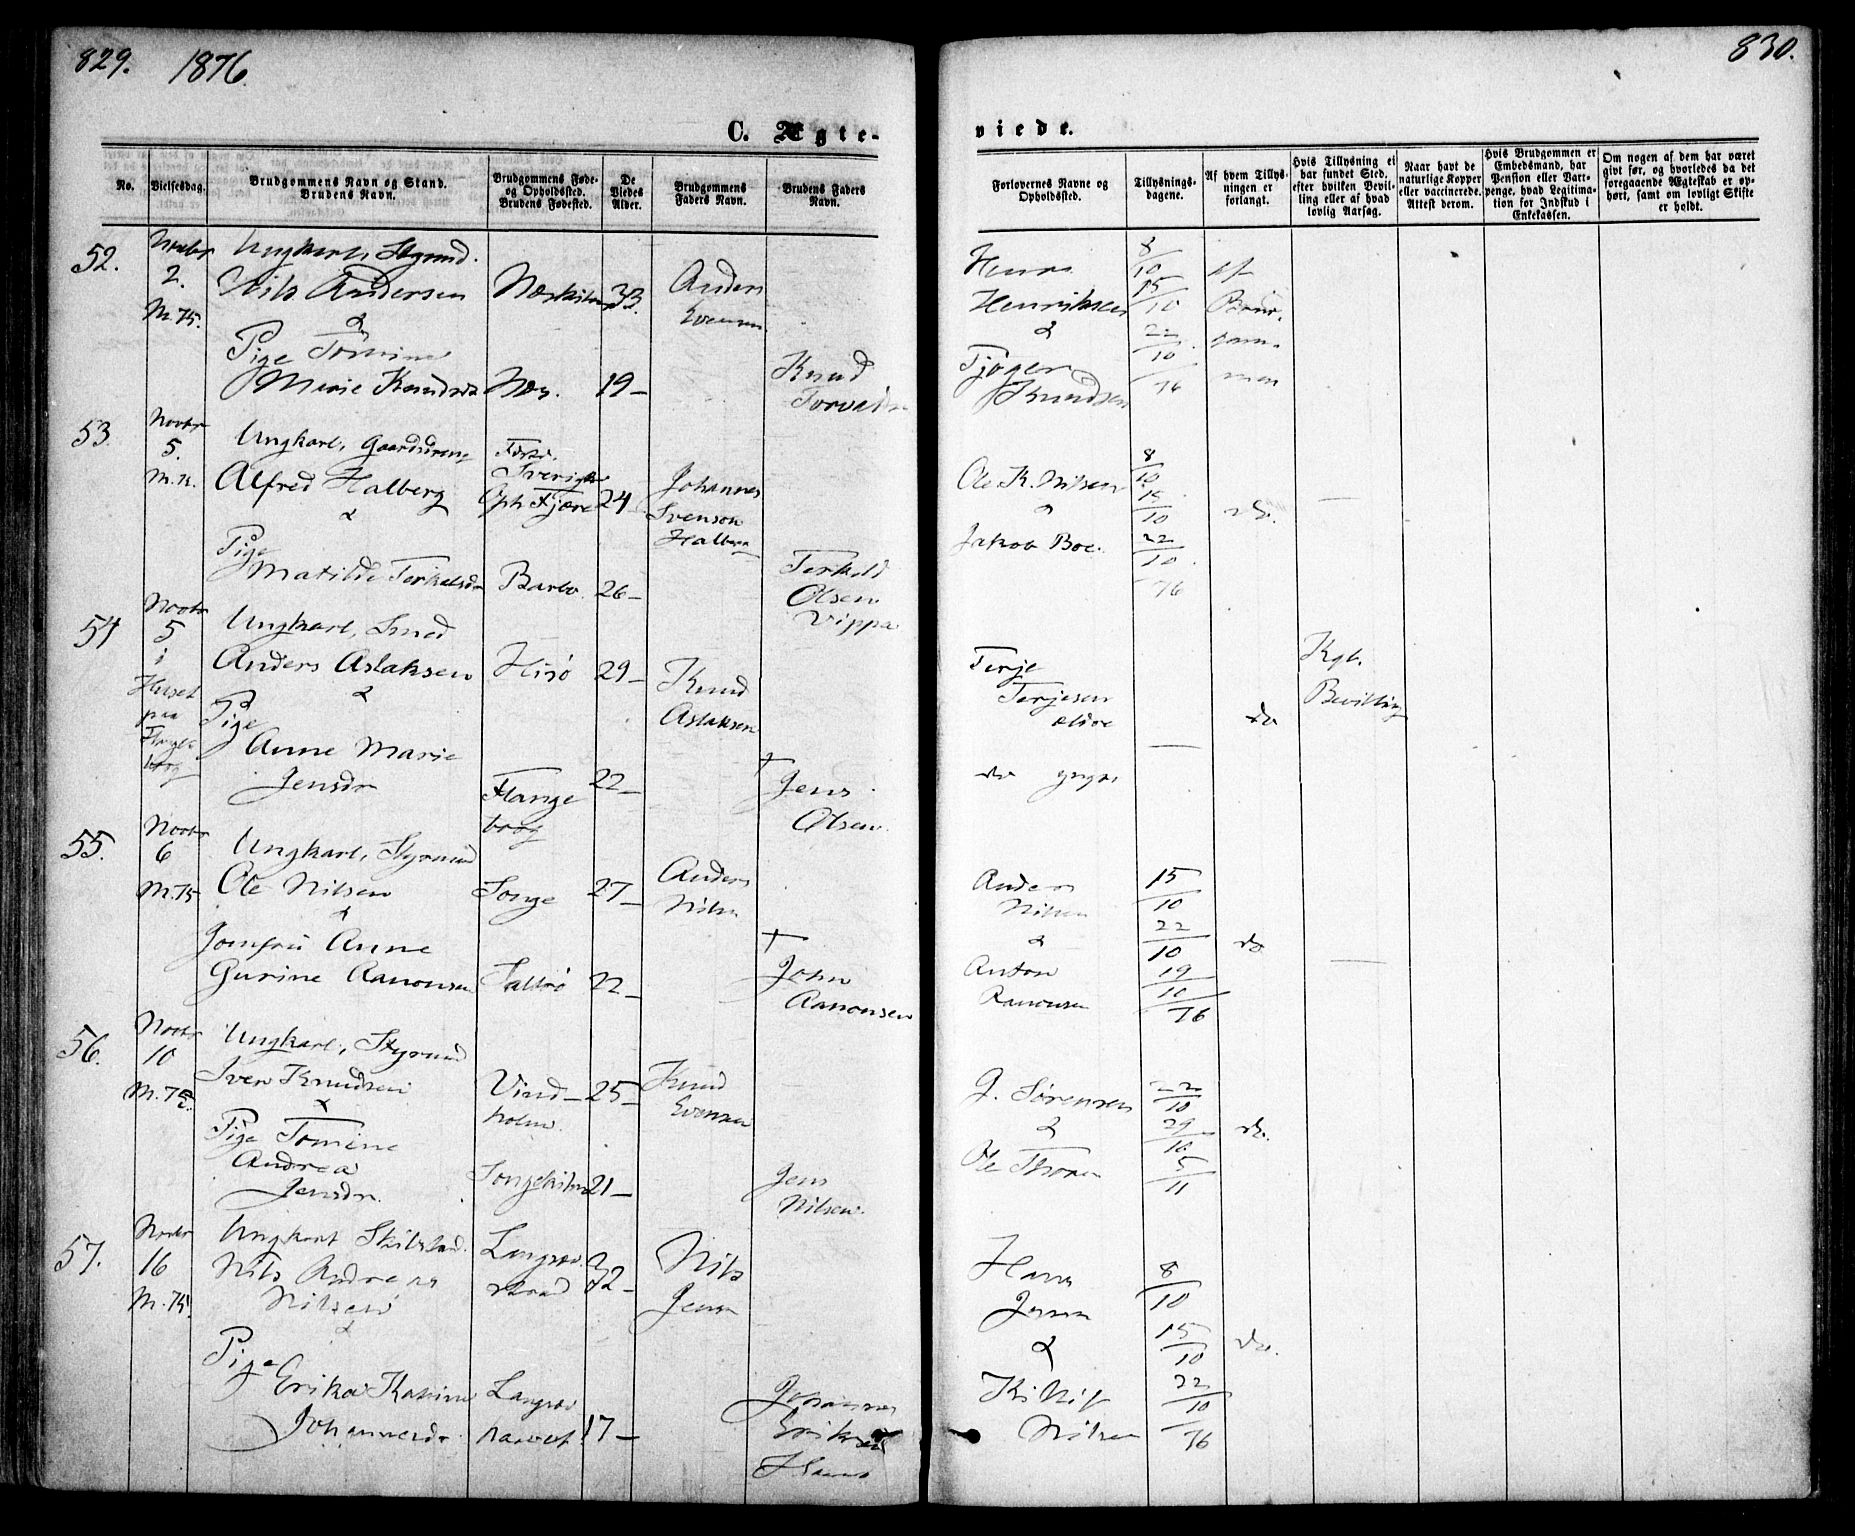 829. 1876.
830.
C. Ægte-
viede.
No.
Vielsesdag.
Brudgommens Navn og Stand.
Brudens Navn.
Brudgommens Føde-
og Opholdssted.
Brudens Fødested.
De
Viedes
Alder.
Brudgommens
Faders Navn.
Brudens Faders
Navn.
Forlovernes Navne og
Opholdssted.
Tillysnings-
dagene.
Af hvem Tillys-
ningen er
forlangt.
Hvis Tillysning ei
har fundet Sted,
efter hvilken Bevil-
ling eller af hvad
lovlig Aarsag.
Naar havt de
naturlige Kopper
eller vaccinerede.
Attest derom.
Hvis Brudgommen er
Embedsmand, har
Pension eller Vart-
penge, hvad Legitima-
tion for Indskud i
Enkekassen.
Om nogen af dem har været
givt før, og hvorledes da det
foregaaende Ægteskab er op-
hørt, samt om lovligt Skifte
er holdt.
52.
Novbr
2.
M. 75.
Ungkarl, Styrmd.
Nils Andersen
&
Pige Tomine
Marie Knudsd
Næskilen
Næs.
33.
19-
Anders
Evensen
Knud
Hans
Henriksen
&
Tjøger
Knudsen
8/10
15/10
22/10
76
af
Brud-
gom-
men
53.
Novbr
5.
Ungkarl, Gaardsdreng
Alfred Halberg
&
Pige
Matilde Terkelsdr
Sverige
Oph. Fjære
Barbo
24
26-
Johannes
Svenson
Halberg
Terkild
Olsen
Vippa
Ole K. Nilsen
&
Jakob Boe.
8/10
15/10
22/10
76
do.
54
Novbr
5
i
Huset
paa
Ungkarl, Smed
Anders Aslaksen
&
Pige
Anne Marie
Jensdr
Hisø
Flange
borg
29-
22-
Knud
Aslaksen
†
Jens
Olsen
Terje
Terjesen
ældre
do yngre
do
Kgl.
Bevilling
55.
Novbr
6
M. 75
Ungkarl, Styrmand
Ole Nilsen
&
Jomfru Anne
Gurine Aanonsen
Songe
Saltrø
27-
22-
Anders
Nilsen
†
John
Aanonsen
Anders
Nilsen
&
Anton
Aanonsen
15/10
22/10
19/10
76
do
56.
Novbr
10
M. 75.
Ungkarl, Styrmd
Sven Knudsen
&
Pige Tomine
Andrea
Jensdr.
Vind-
holm.
Songekilen
25-
21-
Knud
Evensen
Jens
Nilsen.
G. Sørensen
&
Ole Thoren
22/10
29/10
5/11
do.
57.
Novbr
16
M. 75.
Ungkarl Skibstmd.
Nils Andreas
Nilsen
&
Pige
Erika Katrine
Johannesdr.
Langsæ
Langsæ
32-
17-
Nils
Jensen
Johannes
Eriksen
Hans
Jensen
&
Nilsen
8/10
15/10
22/10
76
do.